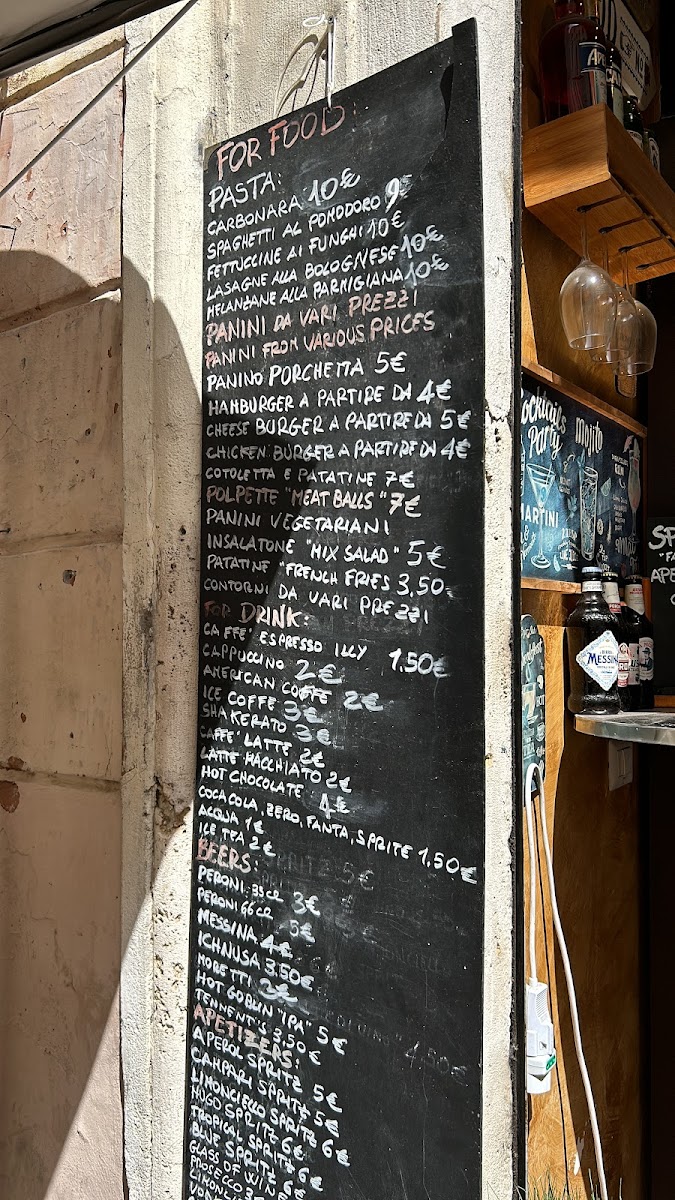 FOR FOOD:
PASTA:
CARBONARA 10€
SPAGHETTI AL POMODORO 9€
FETTUCCINE AI FUNGHI 10€
LASAGNE ALLA BOLOGNESE 10€
MELANZANE ALLA PARMIGIANA 10€
PANINI DA VARI PREZZI
PANINI FROM VARIOUS PRICES
PANINO PORCHETTA 5€
HAMBURGER A PARTIRE DA 4€
CHEESE BURGER A PARTIRE DA 5€
CHICKEN BURGER A PARTIRE DA 4€
COTOLETTA E PATATINE 7€
POLPETTE "MEAT BALLS" 7€
PANINI VEGETARIANI
INSALATONE "MIX SALAD" 5€
PATATINE "FRENCH FRIES 3,50
CONTORNI DA VARI PREZZI
FOR DRINK:
CAFFE' ESPRESSO ILLY 1.50€
CAPPUCCINO 2€
AMERICAN COFFE 2€
ICE COFFE 3€
SHAKERATO 3€
CAFFE' LATTE 2€
LATTE MACCHIATO 2€
HOT CHOCOLATE 4€
COCA COLA, ZERO, FANTA, SPRITE 1,50€
ACQUA 1€
ICE TEA 2€
BEERS:
PERONI 33CR 3€
PERONI 66CR 5€
MESSINA 4€
ICHNUSA 3.50€
MORETTI 3€
HOT GOBLIN "IPA" 5€
TENNENT'S 3,50€
APETIZERS:
APEROL SPRITZ 5€
CAMPARI SPRITZ 5€
LIMONCIELLO SPRITZ 6€
HUGO SPRITZ 6€
TROPICAL SPRITZ 6€
BLUE SPRITZ 6€
GLASS OF WINE
PROSECCO
Cocktails
Party
Mojito
MARTINI
MESSINA